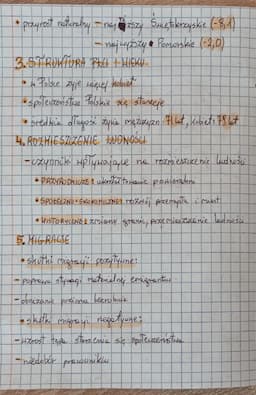 • przyrost naturalny - najniższy Świętokrzyskie (-8,1)
- najwyższy Pomorskie (-2,0)
3. STRUKTURA PŁCI I WIEKU
• w Polsce żyje więcej kobiet
• społeczeństwo Polskie się starzeje
• średnia długość życia mężczyzn 71 lat, kobiet: 78 lat
4. ROZMIESZCZENIE LUDNOŚCI
- czynniki wpływające na rozmieszczenie ludności
• PRZYRODNICZE: ukształtowanie powierzchni
• SPOŁECZNO-EKONOMICZNE: rozwój przemysłu i miast
• HISTORYCZNE: zmiany granic, przemieszczanie ludności
5. MIGRACJE
• skutki migracji pozytywne:
- poprawa sytuacji materialnej emigrantów
- obniżanie poziomu bezrobocia
• skutki migracji negatywne:
- wzrost tempa starzenia się społeczeństwa
- niedobór pracowników